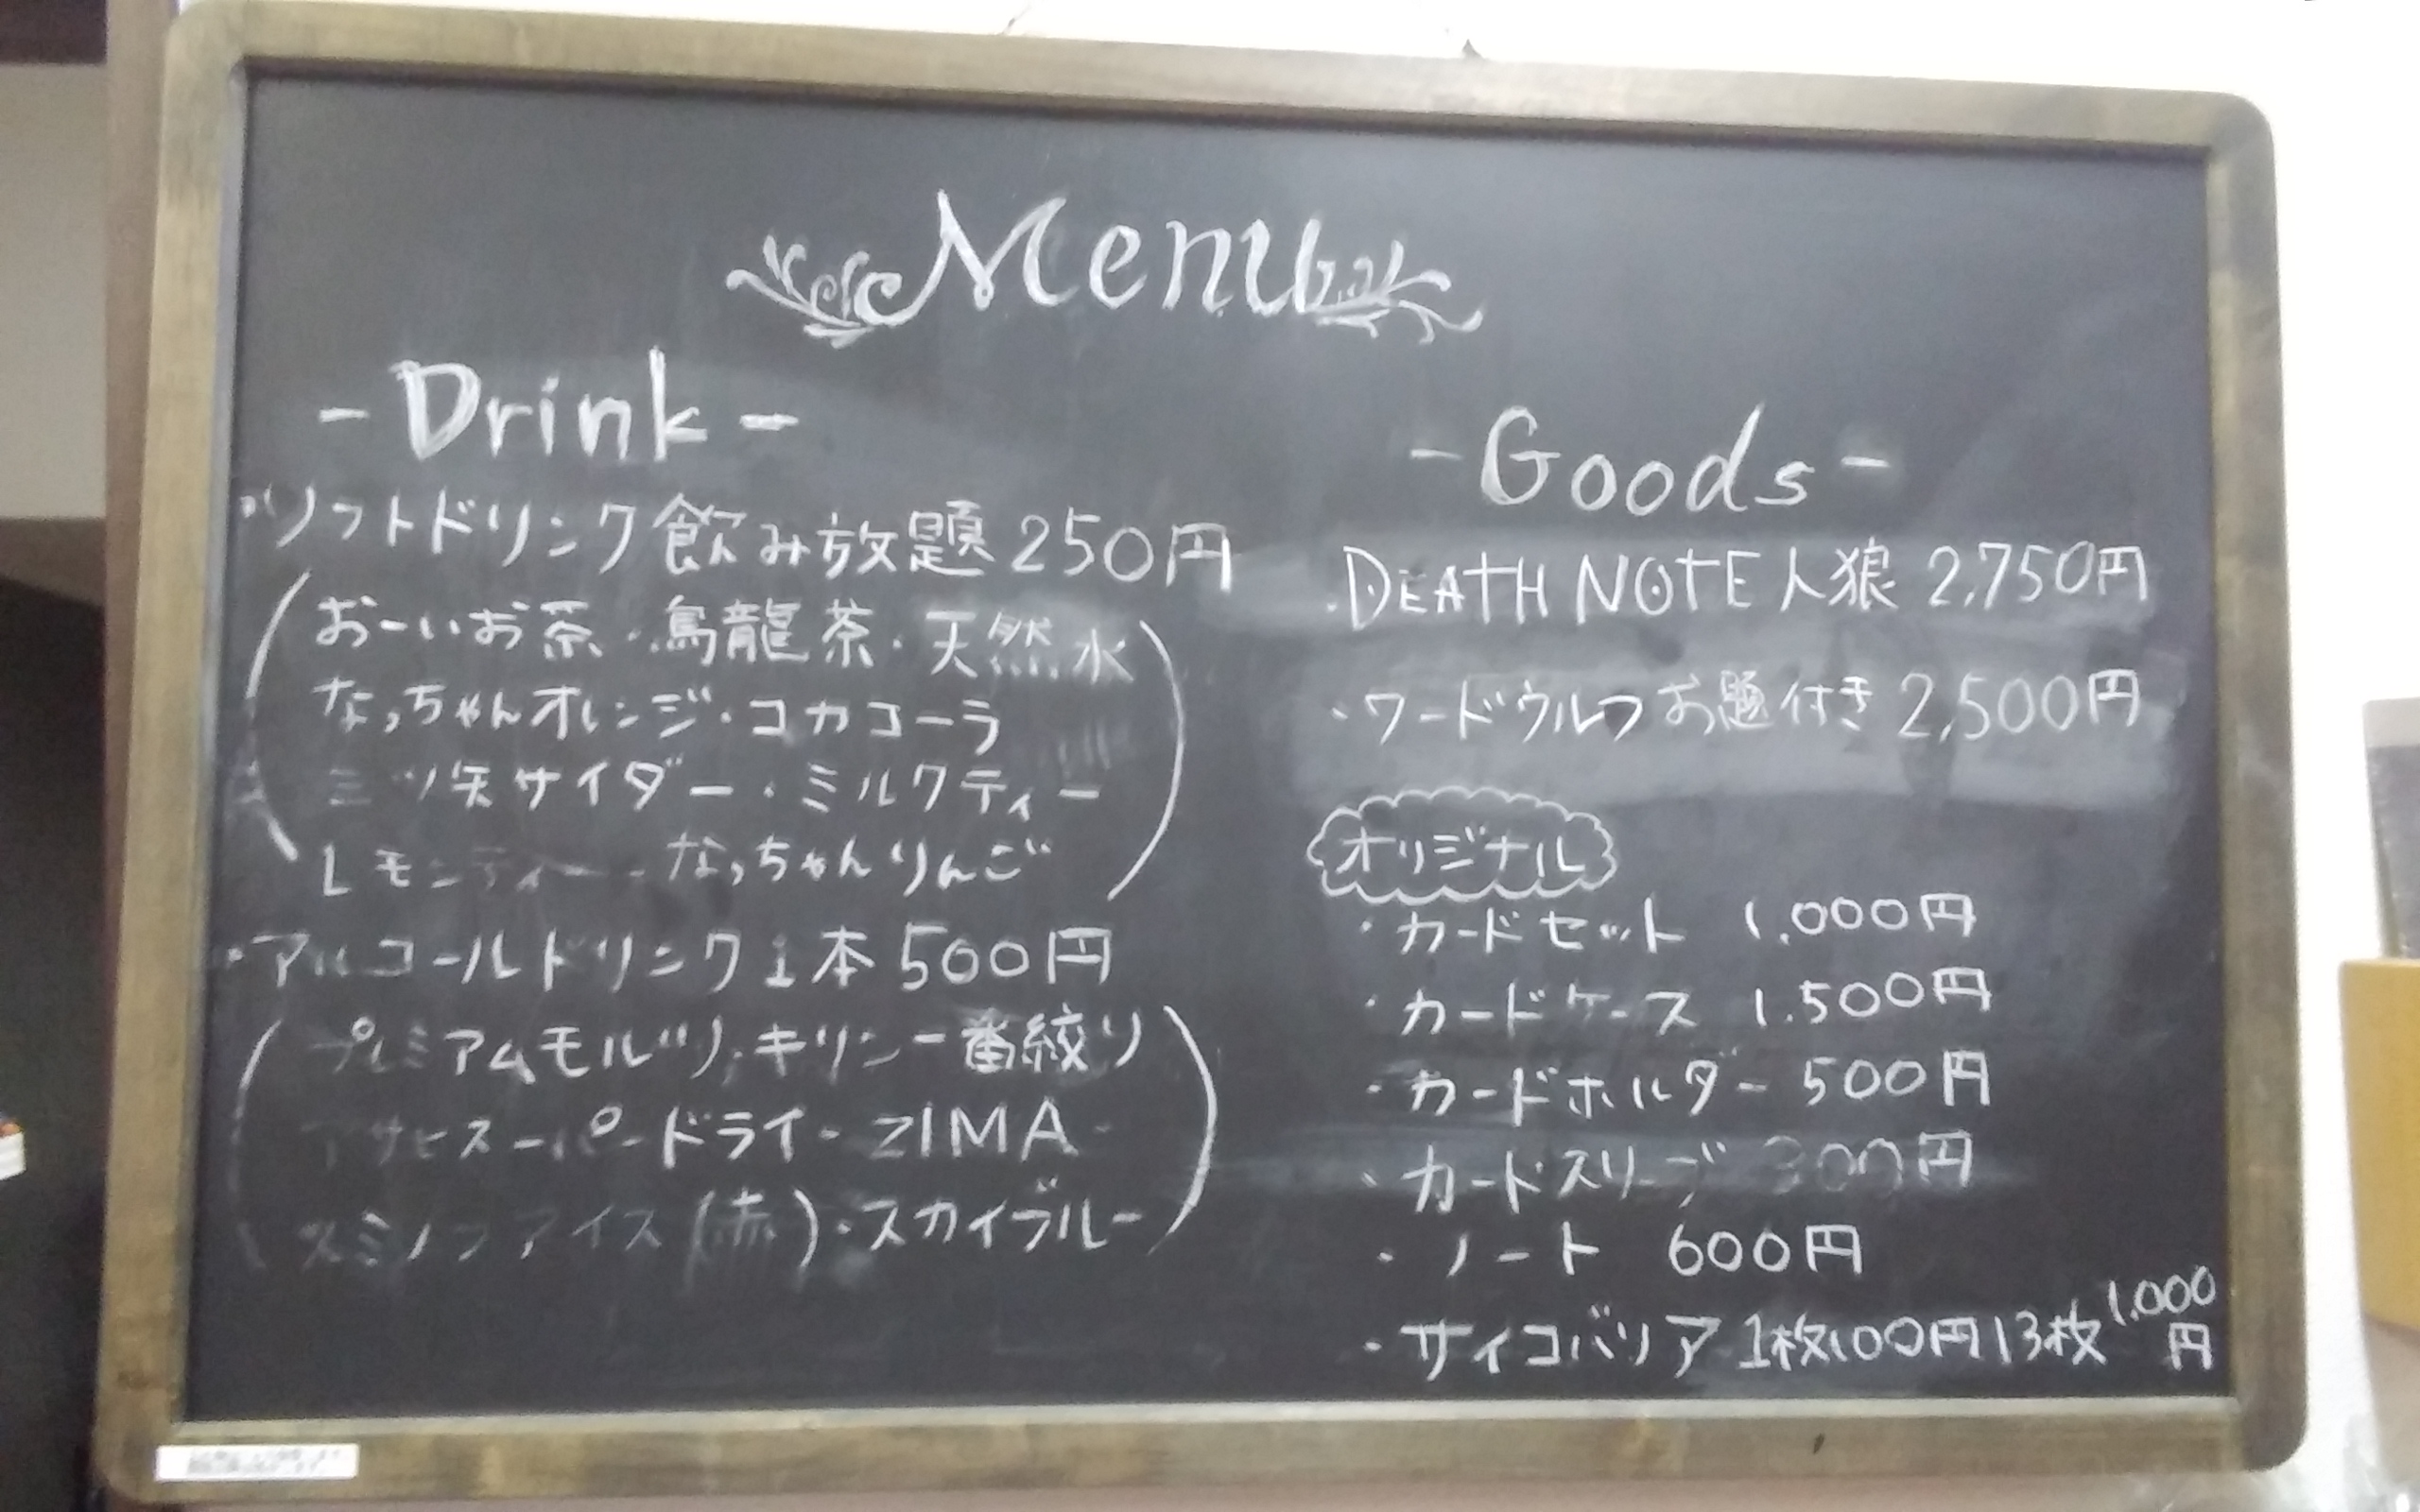 Menu
-Drink-
・ソフトドリンク飲み放題 250円
(おーいお茶・烏龍茶・天然水
なっちゃんオレンジ・コカコーラ
三ツ矢サイダー・ミルクティー
レモンティー・なっちゃんりんご)
・アルコールドリンク1本 500円
(プレミアムモルツ・キリン一番絞り
アサヒスーパードライ・ZIMA・
スミノフアイス(赤)・スカイブルー)
-Goods-
・DEATH NOTE人狼 2,750円
・ワードウルフお題付き 2,500円
オリジナル
・カードセット 1,000円
・カードケース 1.500円
・カードホルダー 500円
・カードスリーブ 300円
・ノート 600円
・サイコバリア 1枚100円 13枚1,000円